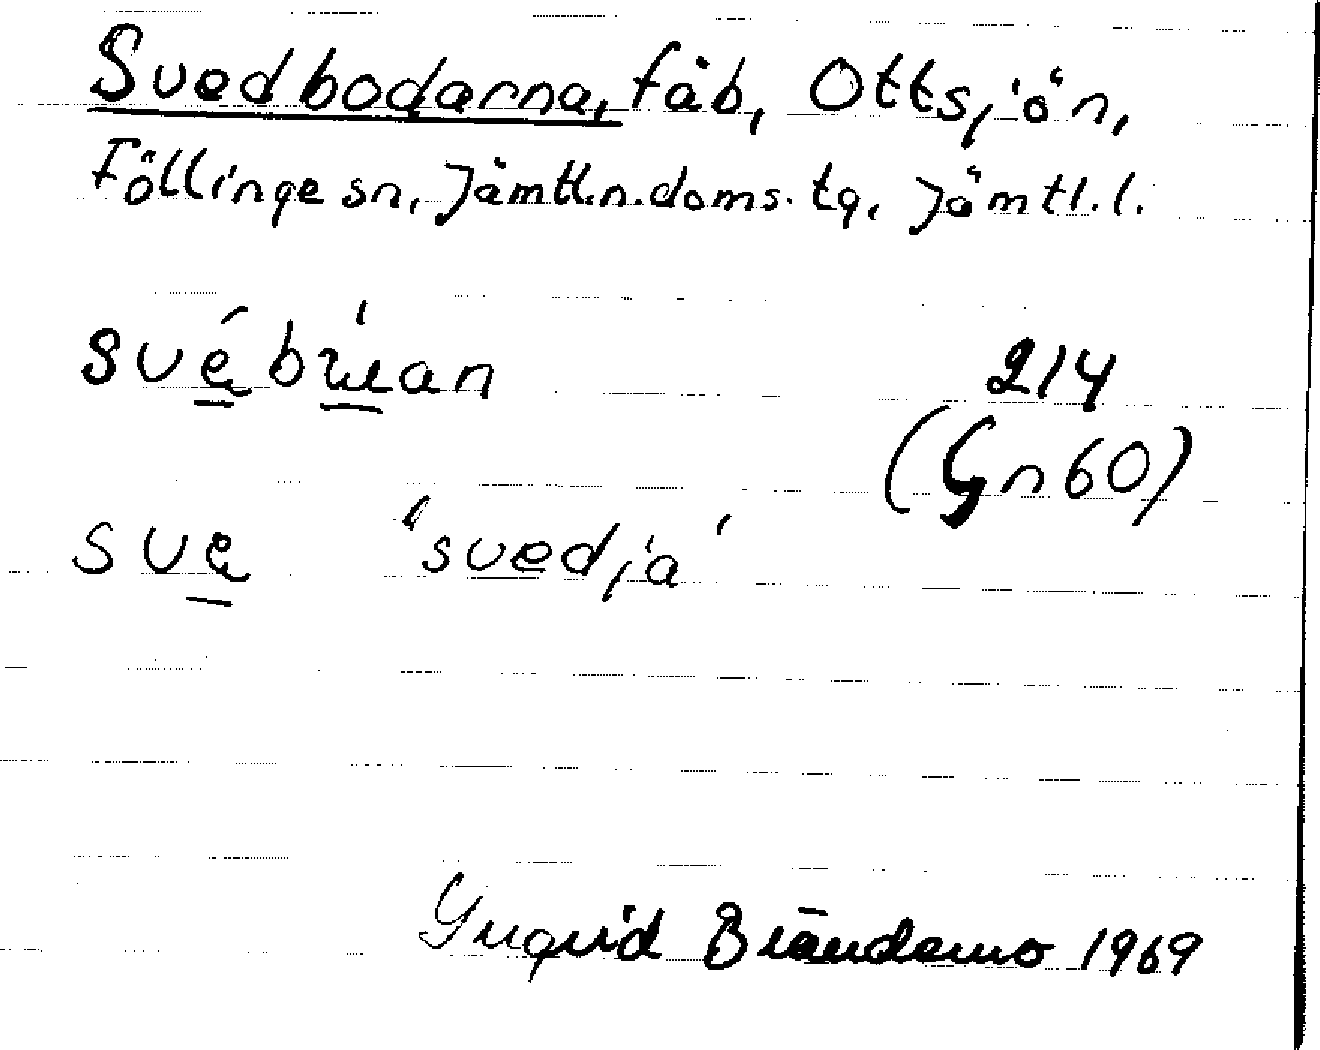 Svedbodarna, fäb, Ottsjön,
Föllinge sn, Jämtl.n.doms.tg, Jämtl.l.
214
(Gn 60)
sve 'svedja'
Ingrid Brändemo 1969